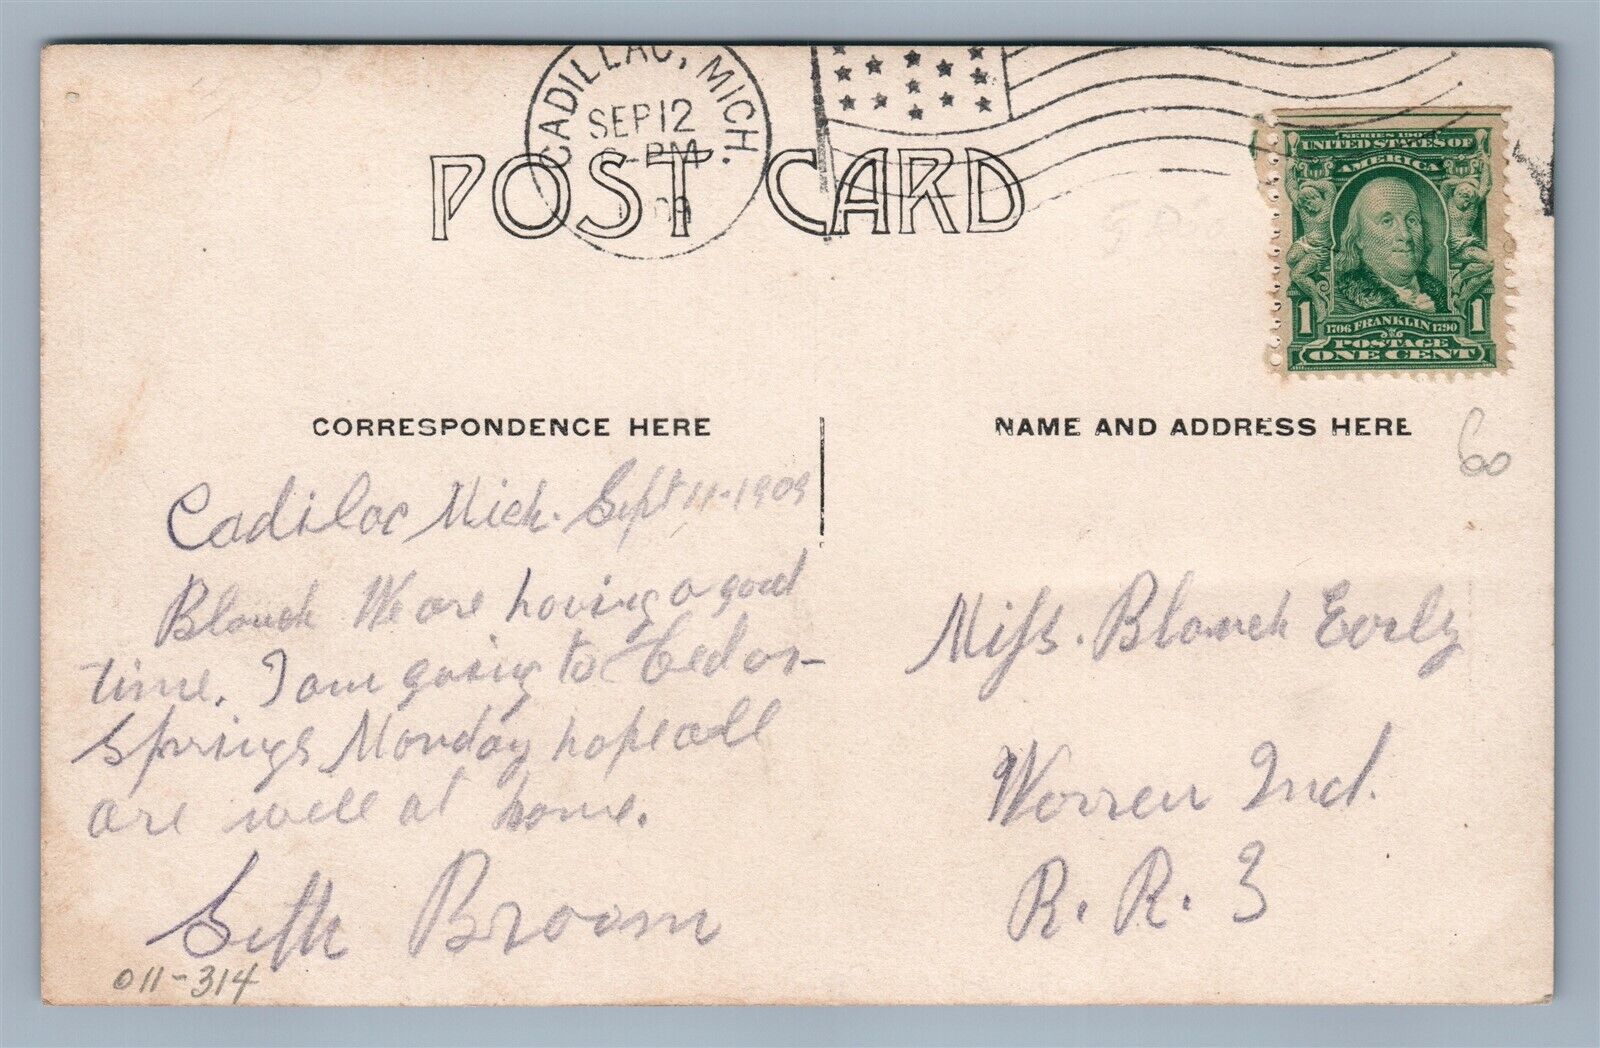 CADILLAC, MICH.
SEP 12
PM
POST CARD
SERIES 1902
UNITED STATES OF
AMERICA
1 1706 FRANKLIN 1790 1
POSTAGE
ONE CENT
CORRESPONDENCE HERE
Cadilac Mich. Sept 11-1909
Blanch We are having a good
time. I am going to Cedar-
Springs Monday hope all
are well at home.
Seth Broom
011-314
NAME AND ADDRESS HERE
60
Miss. Blanch Everly
Warren Ind.
R. R. 3